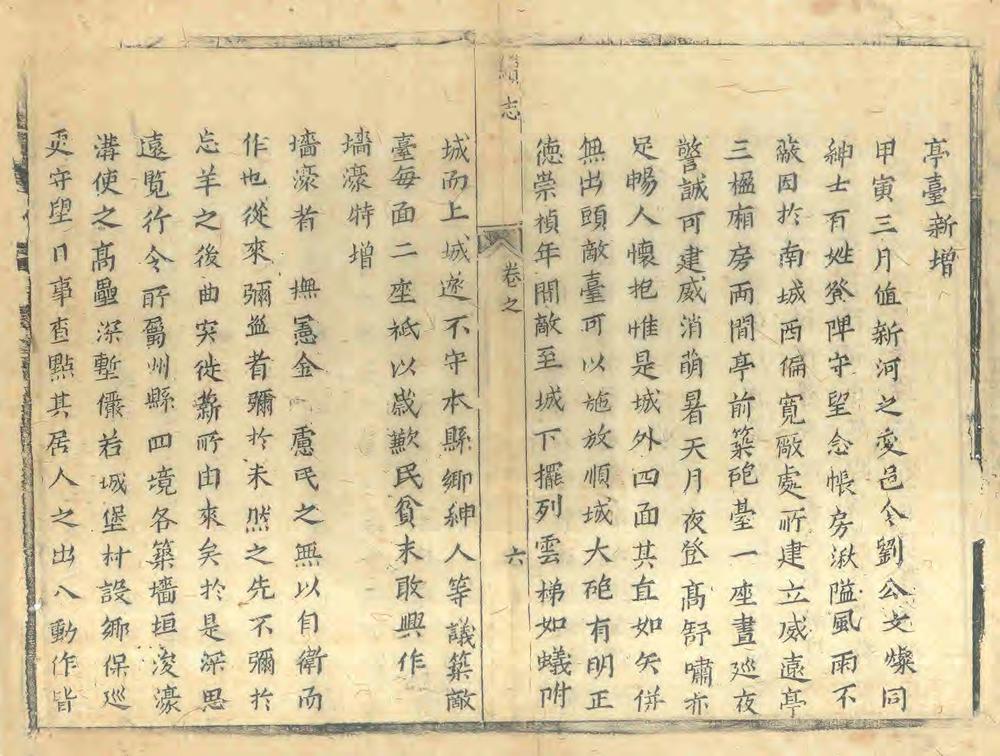 亭臺新增
甲寅三月值新河之變邑令劉公文燦同
紳士百姓登陴守望念帳房湫隘風雨不
蔽因於南城西偏寬敞處所建立威遠亭
三楹廂房兩間亭前築砲臺一座晝巡夜
警誠可建威消萌暑天月夜登高舒嘯亦
足暢人懷抱惟是城外四面其直如矢併
無出頭敵臺可以施放順城大砲有明正
德崇禎年間敵至城下擺列雲梯如蟻附
續志
卷之
六
城而上城遂不守本縣鄉紳人等議築敵
臺每面二座祗以歲歉民貧未敢興作
墻濠特增
墻濠者 撫憲金 慮民之無以自衛而
作也從來彌盜者彌於未然之先不彌於
忘羊之後曲突徙薪所由來矣於是深思
遠覽行令所屬州縣四境各築墻垣浚濠
溝使之高壘深塹儼若城堡村設鄉保巡
更守望日事查點其居人之出入動作皆